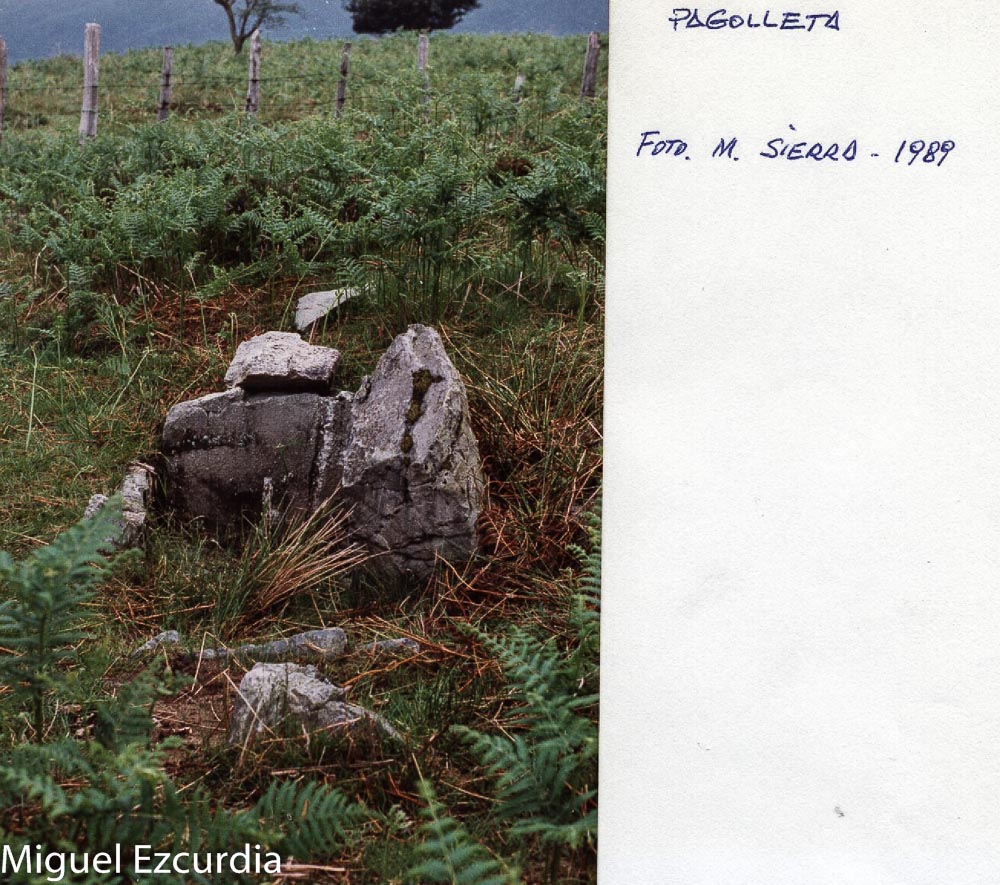 PAGOLLETA
FOTO. M. SIERRA - 1989
Miguel Ezcurdia